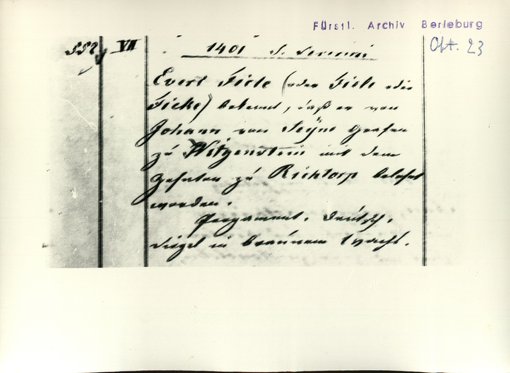 Fürstl. Archiv Berleburg
Okt. 23
VII
1401 S. Severini
Evert Ficke (oder Fiele oder
Ficke) bekennt, daß er von
Johann von Seyne Grafen
zu Witgenstein mit dem
zu Richtorp belehnt
worden.
Pergament. Deutsch.
Siegel in braunem Wachs.